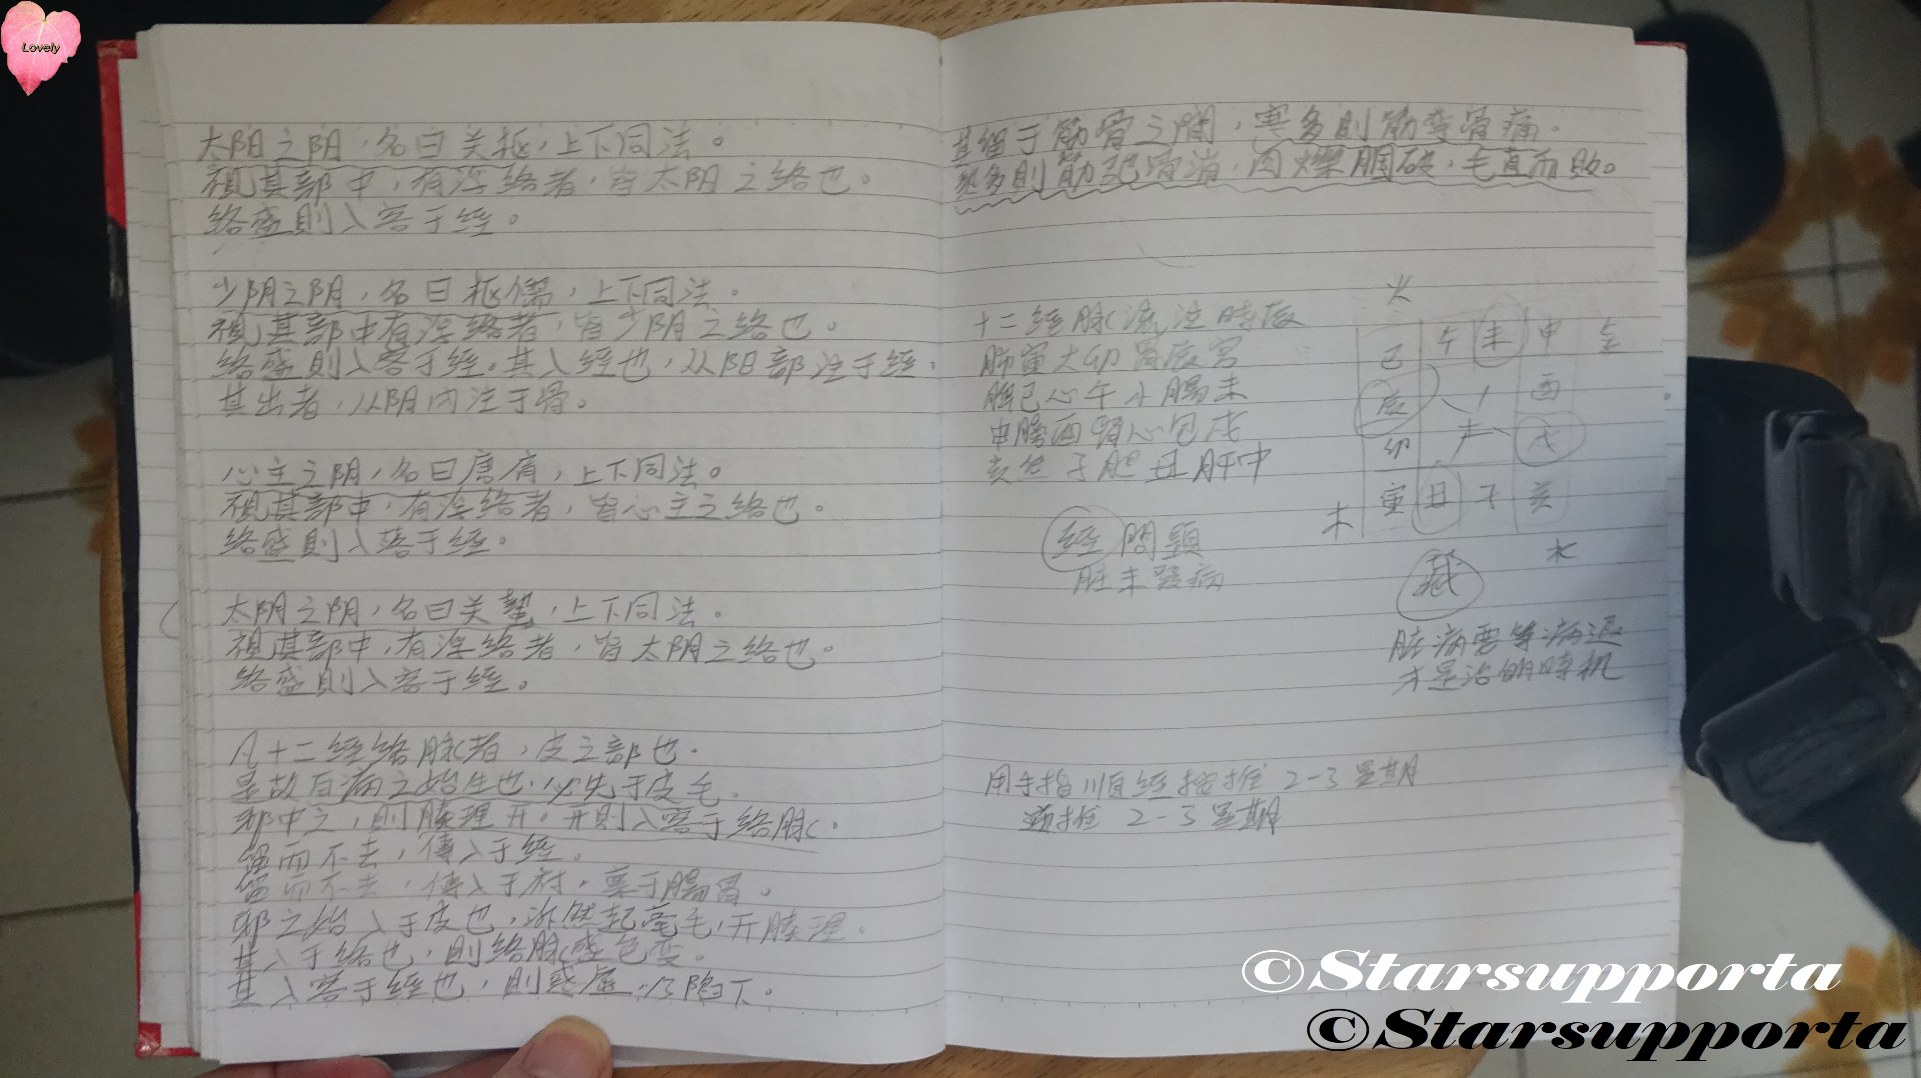 Lovely
太阳之阴，名曰关枢，上下同法。
视其部中，有浮络者，皆太阳之络也。
络盛則入客于经。
少阴之阴，名曰枢儒，上下同法。
视其部中有浮络者，皆少阴之络也。
络盛則入客于经。其入经也，从阳部注于经，
其出者，从阴内注于骨。
心主之阴，名曰唐肩，上下同法。
视其部中，有浮络者，皆心主之络也。
络盛則入客于经。
太阴之阴，名曰关蟄，上下同法。
视其部中，有浮络者，皆太阴之络也。
络盛則入客于经。
凡十二经络脉者，皮之部也。
是故百病之始生也，必先于皮毛。
邪中之，則腠理开。开則入客于络脉。
留而不去，傳入于经。
留而不去，傳入于府，稟于腸胃。
邪之始入于皮也，泝然起毫毛，开腠理。
其入于络也，則络脉盛色变。
其入客于经也，則感虛，乃陷下。
其留于筋骨之間，寒多則筋挛骨痛。
熱多則筋弛骨消，肉爍䐃破，毛直而败。
十二經脉流注時辰
肺寅大卯胃辰宮
脾巳心午小腸未
申膀酉腎心包戌
亥焦子胆丑肝中
火
巳 午 未 申 金
辰 酉
卯 土 戌
木 寅 丑 子 亥
水
經 問題
脏未發病
藏
脏病要等病退
才是治的時机
用手指順经推 2-3 星期
逆推 2-3 星期
©Starsupporta
©Starsupporta